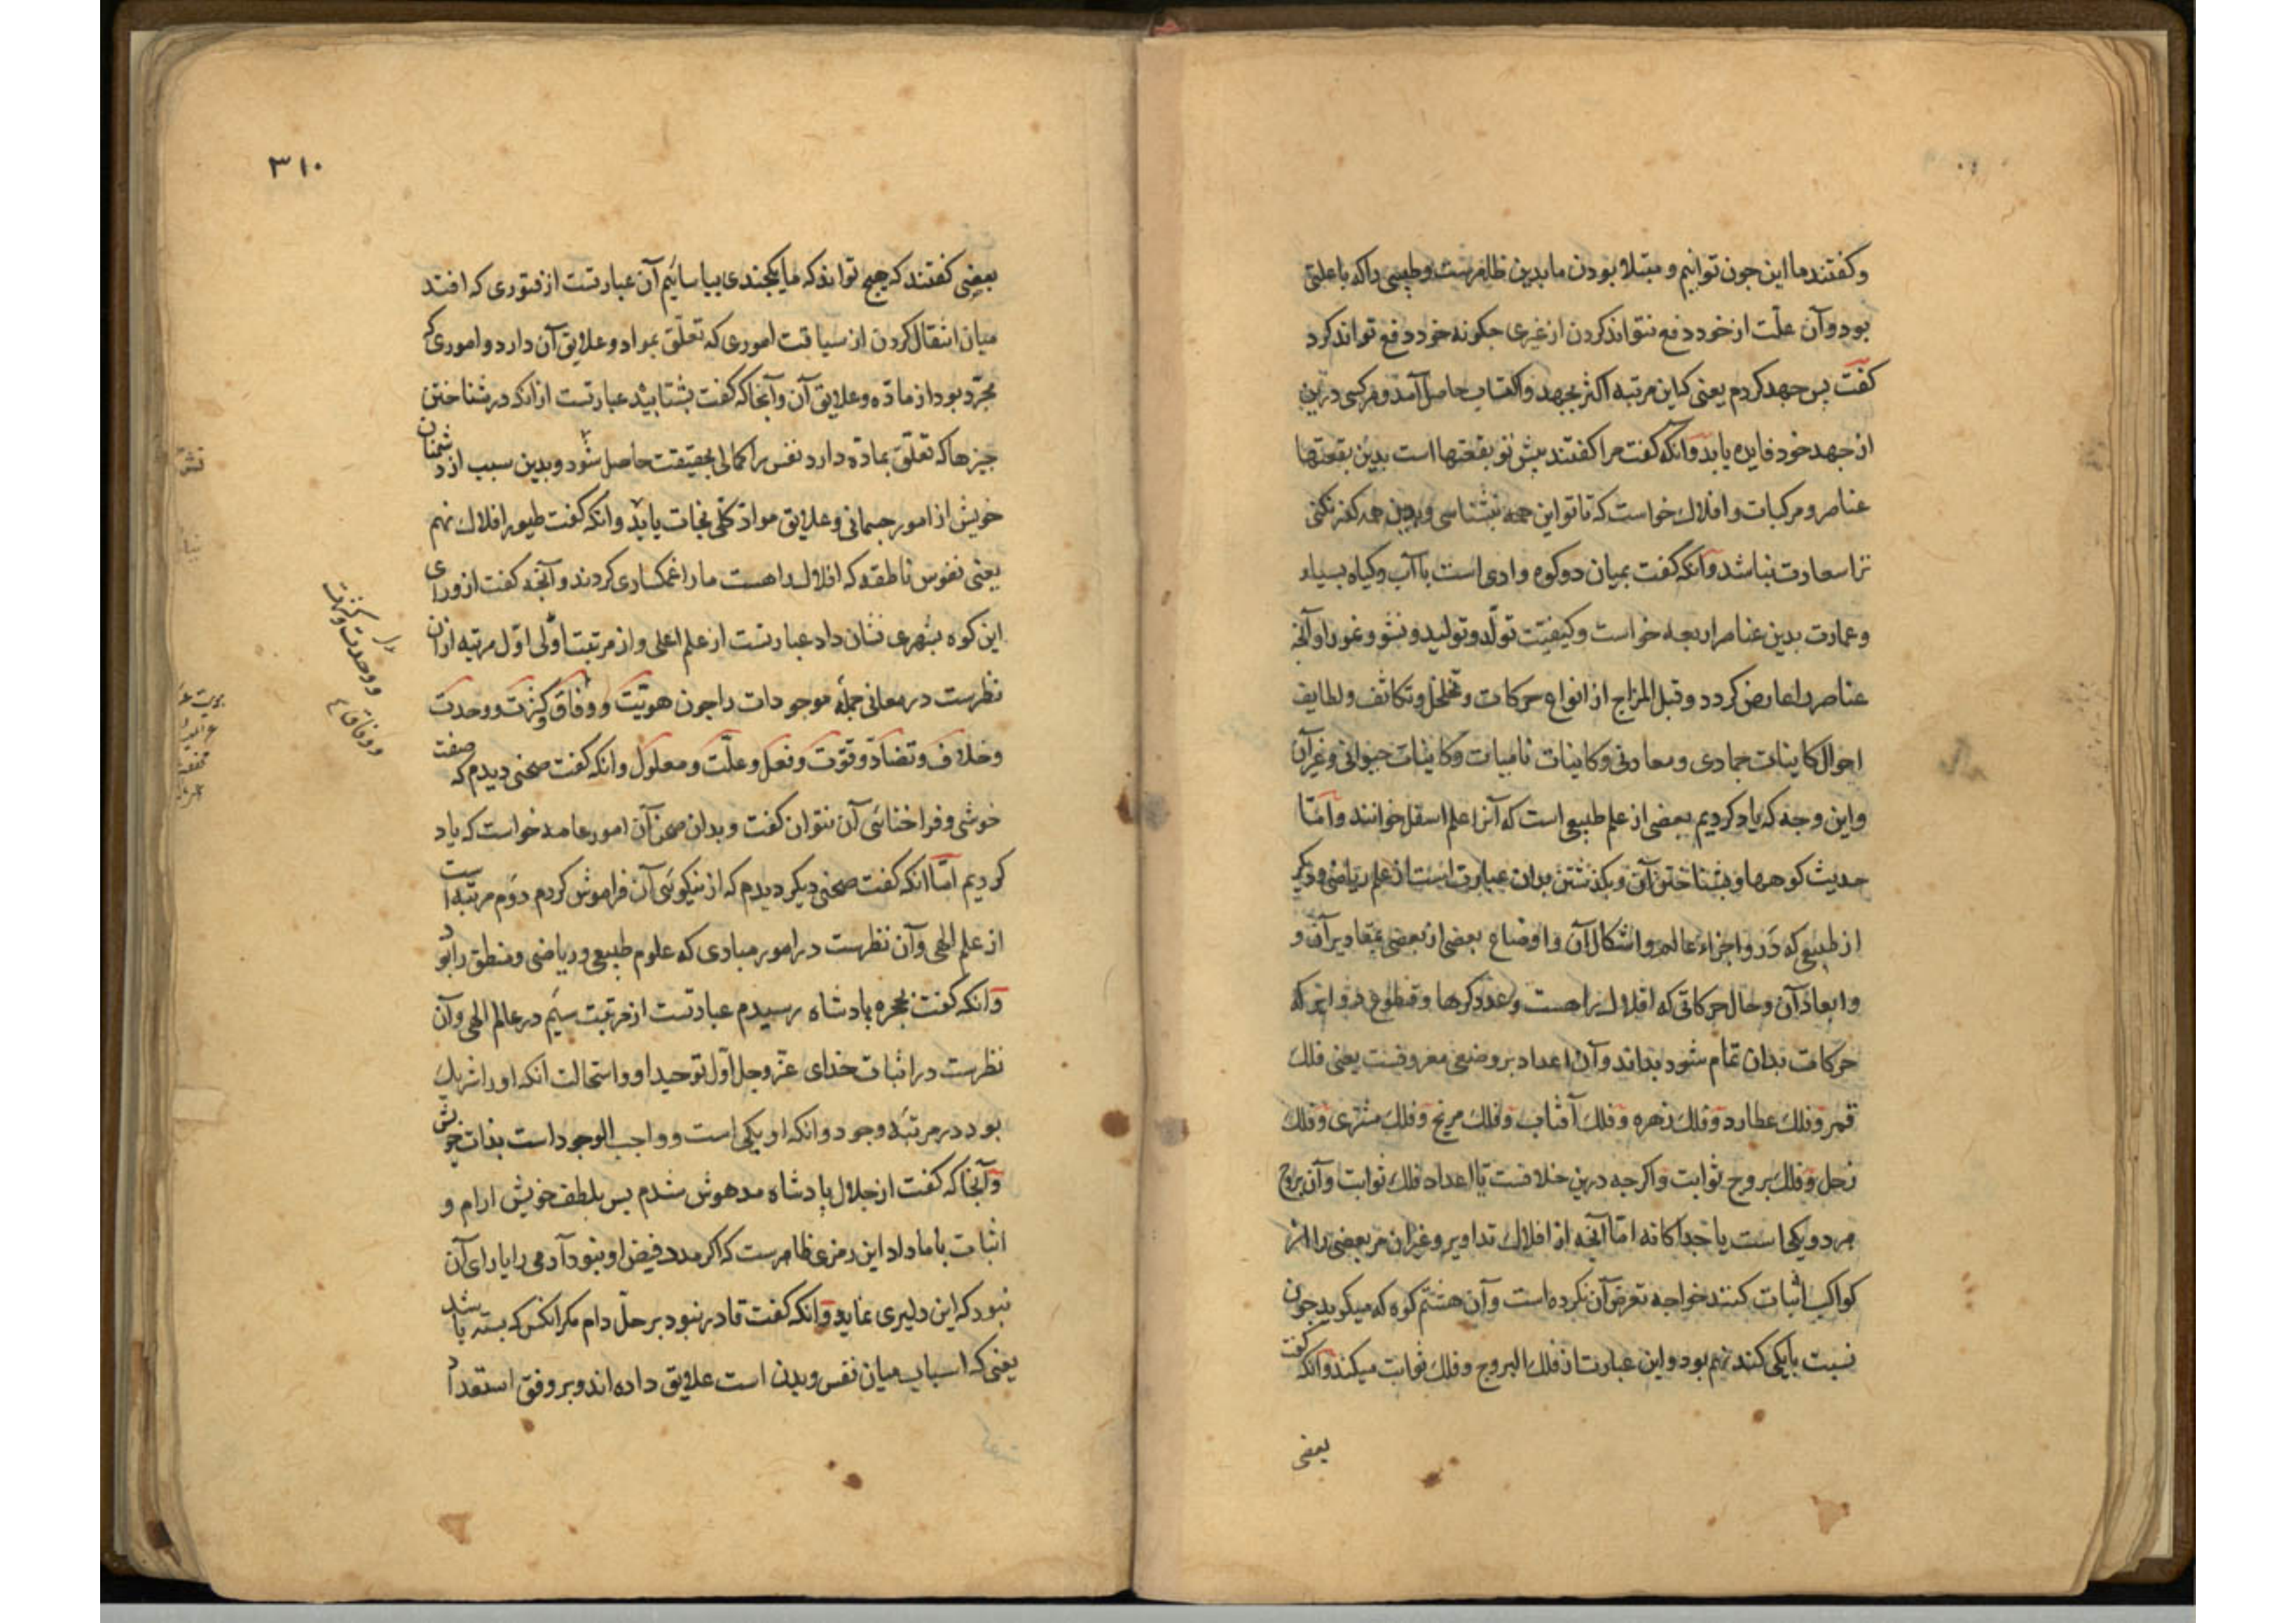 وکفتند ما این جون توانیم و مبتلا بودن ما بدین ظاهرست و طبیبی را که با علتی
بود و آن علّت از خود دفع نتواند کردن از غیری جکونه خود دفع تواند کرد
کفت پس جهد کردم یعنی کاین مرتبه اکثر بجهد و اکتساب حاصل آمد و هر کسی درین
از جهد خود فایده یابد وانکه کفت مرا کفتند پیش تو بقعتها است بدین بقعتها
عناصر و مرکبات و افلاک خواست که تا تو این همه نشناسی و بدین همه کفر نکنی
ترا سعادت نباشد وآنکه کفت بمیان دو کوه وادی است با آب و کیاه بسیار
و عمارت بدین عناصر اربعه خواست و کیفیّت تولّد و تولید و نشو و نمو را و آنجه
عناصر را عارض کردد و قبل المزاج از انواع حرکات و تخلخل و تکاثف و لطایف
احوال کاینات جمادی و معادنی و کاینات نامیات و کاینات حیوانی و غیر آن
و این وجه که یاد کردیم بعضی از علم طبیعی است که آنرا علم اسفل خوانند و امّا
حدیث کوهرها و بشناختن آن و بکذشتن بدان عبارت است از علم ریاضی و دیکر
از طبیعی که در و اجزاء عالم و اشکال آن و اوضاع بعضی از بعضی بمقادیر آن و
و ابعاد آن و حال حرکاتی که افلاک را هست و عدد کرها و قطوع دوایر که
حرکات بدان تمام شود بداند و آن اعداد بر وضعی معروفست یعنی فلک
قمر و فلک عطارد و فلک زهره و فلک آفتاب و فلک مریخ و فلک مشتری و فلک
زحل و فلک بروج ثوابت و اکرجه درین خلافست تا اعداد فلک ثوابت و آن بروج
هر دو یکی است یا جداکانه امّا آنجه از افلاک تداویر و غیر آن مر بعضی را از
کواکب اثبات کنند خواجه تعرض آن نکرده است و آن هشتم کوه که میکوید جون
نسبت با یکی کند نهم بود و این عبارت از فلک البروج و فلک ثوابت میکند وانکه کفت
بعضی
٣١٠
بعضی کفتند که هیج تواند که ما یکجندی بیاسائیم آن عبارتست از فتوری که افتد
میان انتقال کردن از سیاقت اموری که تعلّق بمواد و علایق آن دارد و اموری که
مجرّد بود از مادّه و علایق آن وآنجا که کفت بشتابید عبارتست از انکه در شناختن
جیزها که تعلّق بمادّه دارد نفس را کمالی بحقیقت حاصل شود و بدین سبب از دشمنان
خویش از امور جسمانی و علایق موادّ کلّی نجات یابد و انکه کفت طیور افلاک نهم
یعنی نفوس ناطقه که افلاک را هست ما را غمکساری کردند و آنجه کفت از ورای
این کوه بشهری نشان داد عبارتست از علم اعلی و از مرتبت اوّلی اوّل مرتبه از آن
نظرست در معانی جملهٔ موجودات را جون هویّت و وفاق و کثرت و وحدت
و خلاف و تضادّ و قوّت و فعل و علّت و معلول وانکه کفت صحنی دیدم که صفت
خوشی و فراخنائی آن نتوان کفت و بدان صحن آن امور عامه خواست که یاد
کردیم امّا انکه کفت صحنی دیکر دیدم که از نیکوئی آن فراموش کردم دوم مرتبه است
از علم الهی و آن نظرست در امور مبادی که علوم طبیعی و ریاضی و منطق را بود
وانکه کفت بحجره پادشاه رسیدم عبارتست از مرتبت سیم در عالم الهی و آن
نظرست در اثبات خدای عزّ و جل اوّل توحید او و استحالت انکه او را شریک
بود در مرتبهٔ وجود و انکه او یکی است و واجب الوجود است بذات خویش
وآنجا که کفت از جلال پادشاه مدهوش شدم پس بلطف خویش ارام و
اثبات با ما داد این رمزی ظاهرست که اکر مدد فیض او نبود آدمی را یارای آن
نبود که این دلیری نماید وانکه کفت قادر نبود بر حلّ دام مکر انکس که بسته باشد
یعنی که اسباب میان نفس و بدن است علایق داده اند و بر وفق استعداد
و وحدت و کثرت
و وفاق